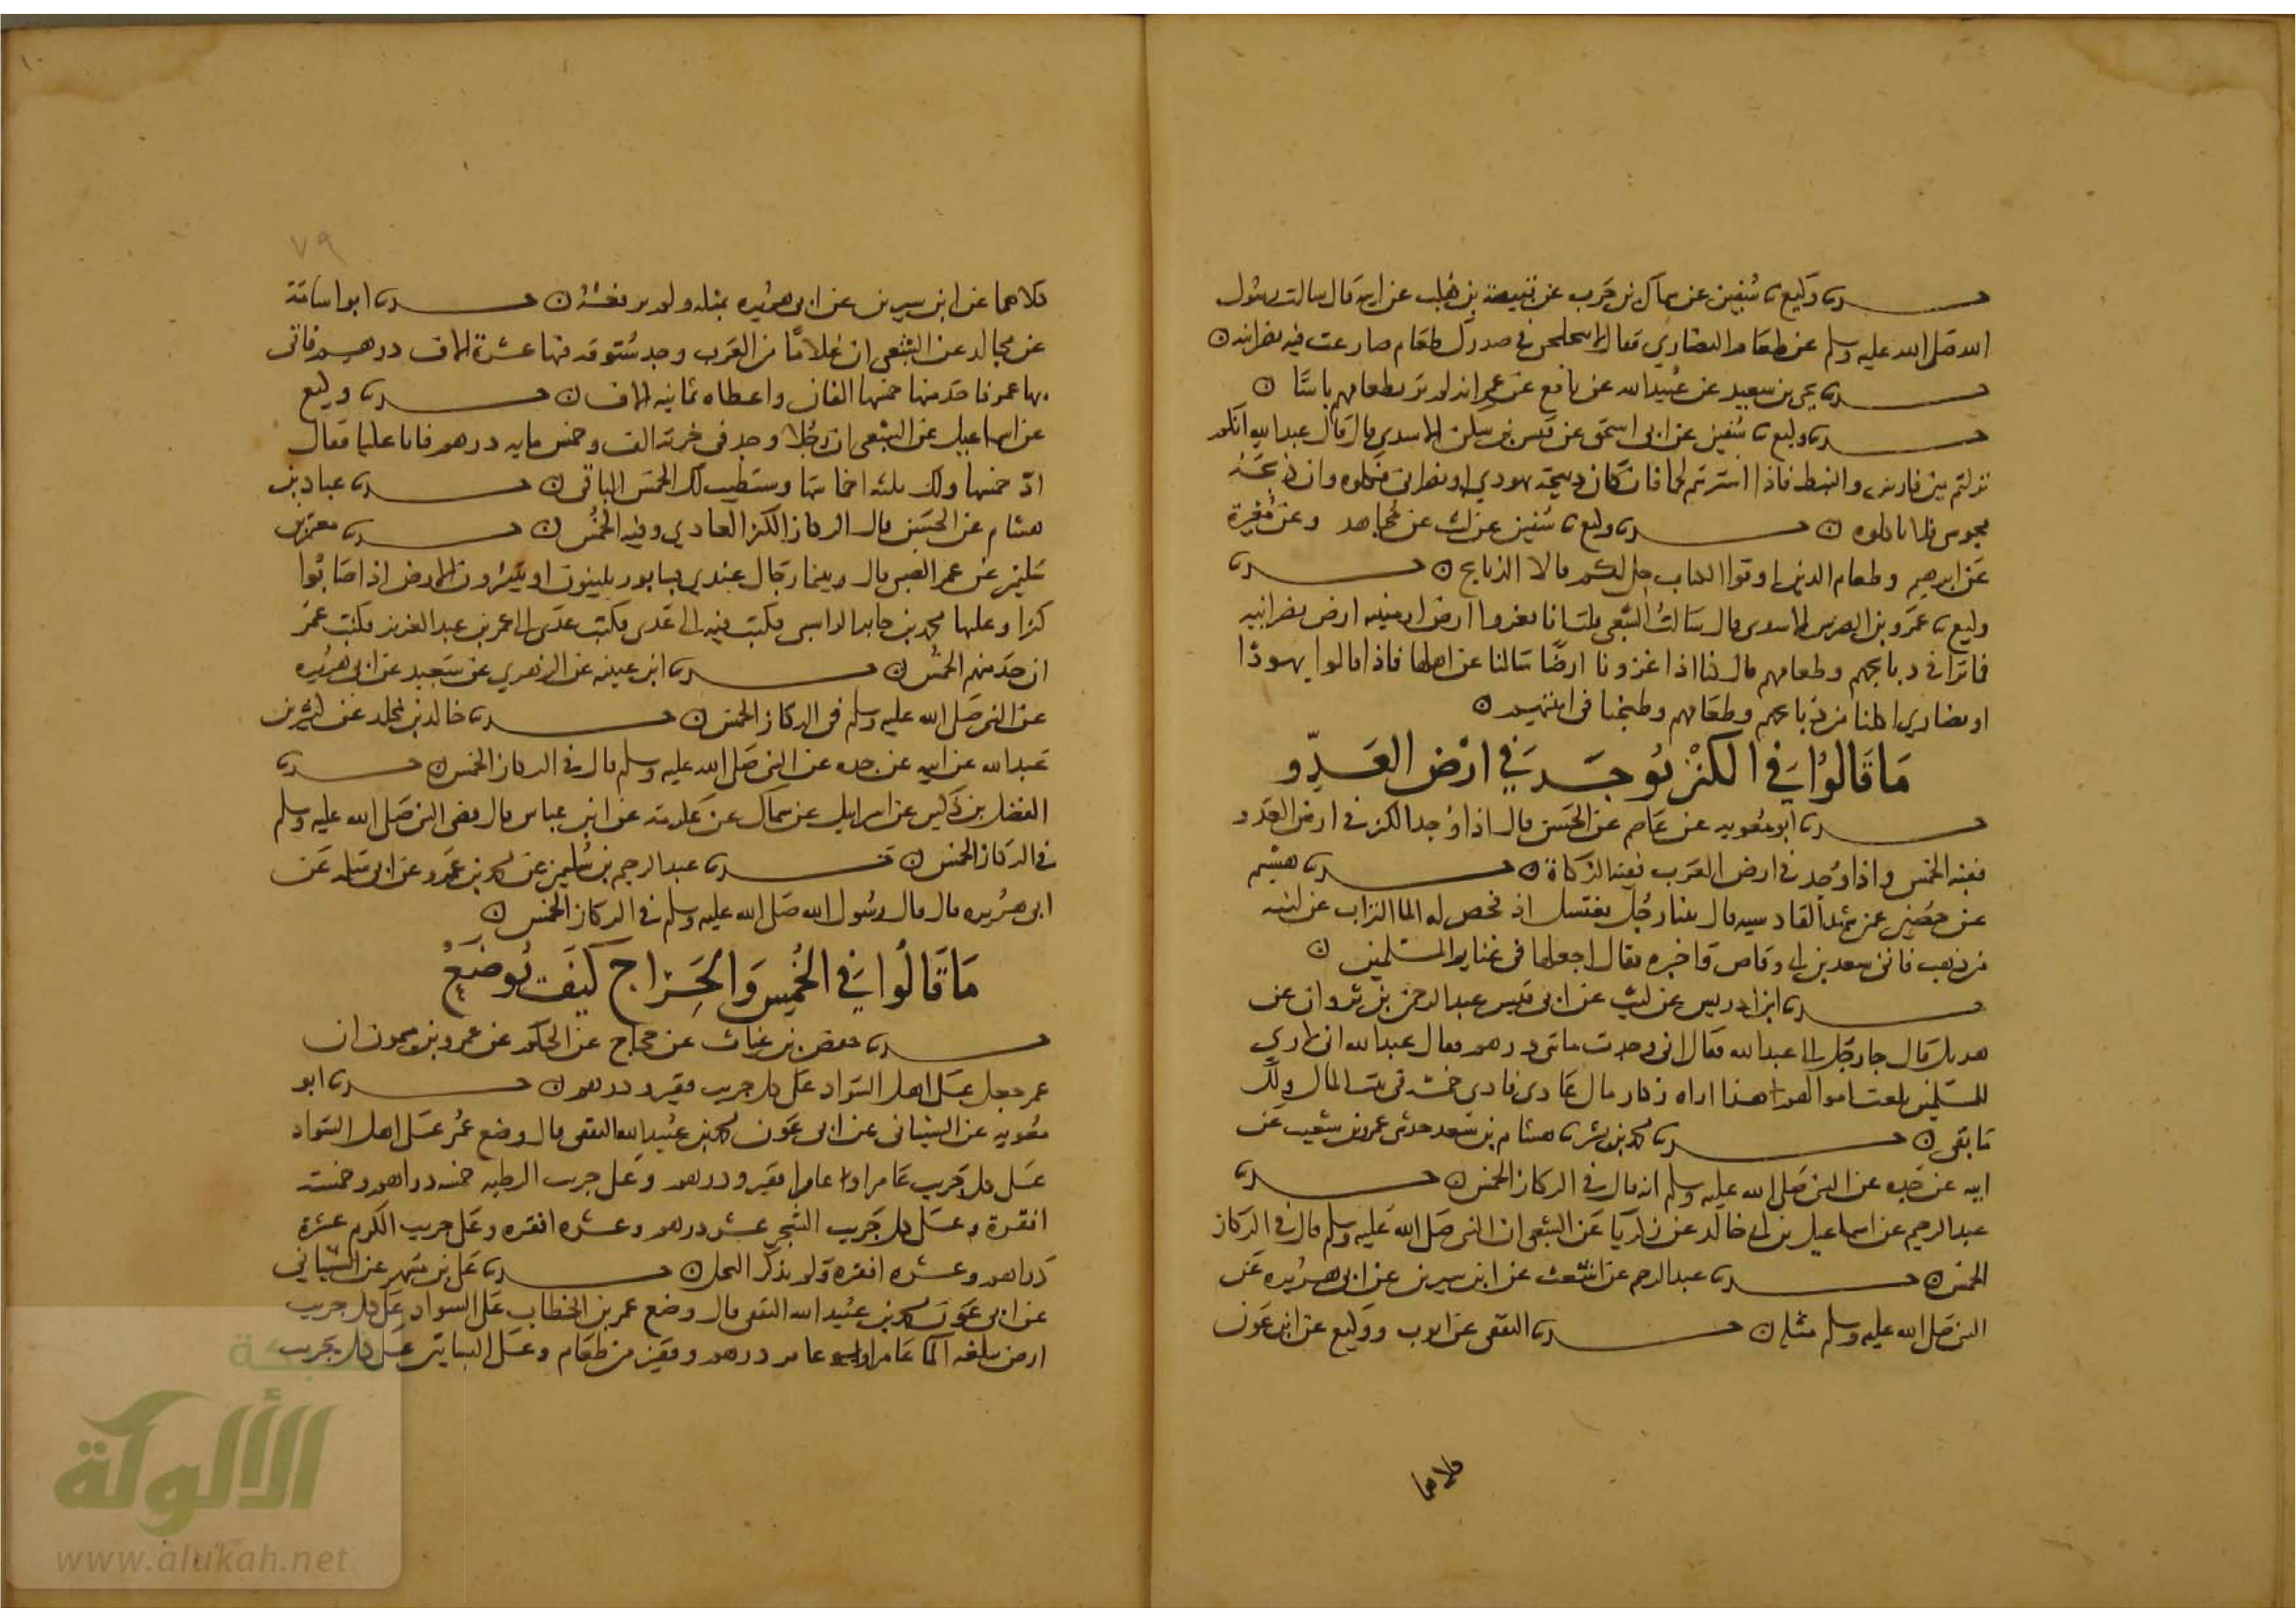 حدثنا وكيع ثنا سفين عن سماك بن حرب عن قبيصة بن هلب عن ابيه قال سالت رسول
الله صلى الله عليه وسلم عن طعام النصارى فقال لا يتخلجن في صدرك طعام ضارعت فيه نصرانيه
حدثنا يحيى بن سعيد عن عبيد الله عن نافع عن عمر انه لم ير بطعامهم باسًا
حدثنا وكيع ثنا سفين عن ابى اسحق عن قيس بن سكن الاسدي قال قال عبد الله انكم
نزلتم بين فارس والنبط فاذا اشتريتم لحما فان كان ذبيحة يهودي او نصراني فكلوه وان ذبحه
مجوسي فلا تاكلوه حدثنا وكيع ثنا سفين عن ليث عن مجاهد وعن مغيرة
عن ابرهيم وطعام الذين اوتوا الكتاب حل لكم قالا الذبايح حدثنا
وكيع ثنا عمرو بن الاسدى قال سالت الشعبي قلت انا نغزوا ارض ارمينيه ارض نصرانيه
فما ترى في ذبايحهم وطعامهم قال كنا اذا غزونا ارضًا سالنا عن اهلها فاذا قالوا يهودًا
او نصارى اكلنا من ذبايحهم وطعامهم وطبخنا في انيتهم
مَا قَالُوا في الكنز يُوجَد في ارض العَدوّ
حدثنا ابو معويه عن عاصم عن الحسن قال اذا وُجد الكنز في ارض العدو
ففيه الخمس واذا وُجد في ارض العرب ففيه الزكاة حدثنا هشيم
عن حصين عن من شهد القادسيه قال بينا رجل يغتسل اذ فحص له الما التراب عن لبنه
من ذهب فاتى سعد بن ابى وقاص فاخبره فقال اجعلها في غنايم المسلمين
حدثنا ابن ادريس عن ليث عن ابى قيس عبد الرحمن بن ثروان عن
هزيل قال جا رجل الى عبد الله فقال انى وجدت مائتى درهم فقال عبد الله انى لا ارى
المسلمين بلغت اموالهم هذا اراه ركاز مال عادى فادى خمسه فى بيت المال ولك
ما بقى حدثنا محمد بن بشر ثنا هشام بن سعد حدثنى عمرو بن شعيب عن
ابيه عن جده عن النبى صلى الله عليه وسلم انه قال في الركاز الخمس حدثنا
عبد الرحيم عن اسماعيل بن ابى خالد عن زكريا عن الشعبى ان النبى صلى الله عليه وسلم قال في الركاز
الخمس حدثنا عبد الرحيم عن اشعث عن ابن سيرين عن ابى هريره عن
النبى صلى الله عليه وسلم مثله حدثنا الثقفى عن ايوب ووكيع عن ابن عون
كلاهما
٧٩
كلاهما عن ابن سيرين عن ابى هريره بمثله ولم يرفعه حدثنا ابو اسامة
عن مجالد عن الشعبى ان غلامًا من العرب وجد ستوقة فيها عشرة الاف درهم فاتى
بها عمر فاخذ منها خمسها الفان واعطاه ثمانيه الاف حدثنا وكيع
عن اسماعيل عن الشعبى ان رجُلا وجد فى خربة الف وخمس مايه درهم فاتا عليا فقال
ادّ خمسها ولك ثلثه اخماسها وسنطيب لك الخمس الباقى حدثنا عباد بن
هشام عن الحسن قال الركاز الكنز العادي وفيه الخُمُس حدثنا معتمر بن
سليمن عن عمر الضبى قال وبينما رجال عندي بسابور يلينون او يثيرون الارض اذ اصابوا
كنزا وعليها محمد بن جابر الراسبى فكتب فيه الى عدى فكتب عدى الى عمر بن عبد العزيز فكتب عمر
ان خذ منهم الخمس حدثنا ابن عيينه عن الزهري عن سعيد عن ابى هريره
عن النبى صلى الله عليه وسلم فى الركاز الخمس حدثنا خالد بن مخلد عن كثير بن
عبد الله عن ابيه عن جده عن النبى صلى الله عليه وسلم قال في الركاز الخمس حدثنا
الفضل بن دكين عن اسرايل عن سماك عن عكرمة عن ابن عباس قال قضى النبى صلى الله عليه وسلم
في الركاز الخمس حدثنا عبد الرحيم بن سليمن عن محمد بن عمرو عن ابى سلمه عن
ابى هريره قال قال رسول الله صلى الله عليه وسلم في الركاز الخمس
مَا قَالُوا في الخُمُس وَالخَرَاج كَيفَ يُوضَعُ
حدثنا حفص بن غياث عن حجاج عن الحكم عن عمرو بن ميمون ان
عمر جعل على اهل السواد على كل جريب قفيز ودرهم حدثنا ابو
معويه عن الشيبانى عن ابى عون محمد بن عبيد الله الثقفى قال وضع عُمر على اهل السواد
على كل جريب عامر او غامر قفيز ودرهم وعلى جريب الرطبه خمسه دراهم وخمسة
اقفزة وعلى كل جريب الشجر عشره درهم وعشره اقفزه وعلى جريب الكرم عشرة
دراهم وعشره اقفزه ولم يذكر النخل حدثنا على بن مسهر عن الشيبانى
عن ابى عون محمد بن عبيد الله الثقفى قال وضع عمر بن الخطاب على السواد على كل جريب
ارض يبلغه الما عامر او غامر درهم وقفيز من طعام وعلى البساتين على كل جريب
الألوكة
www.alukah.net